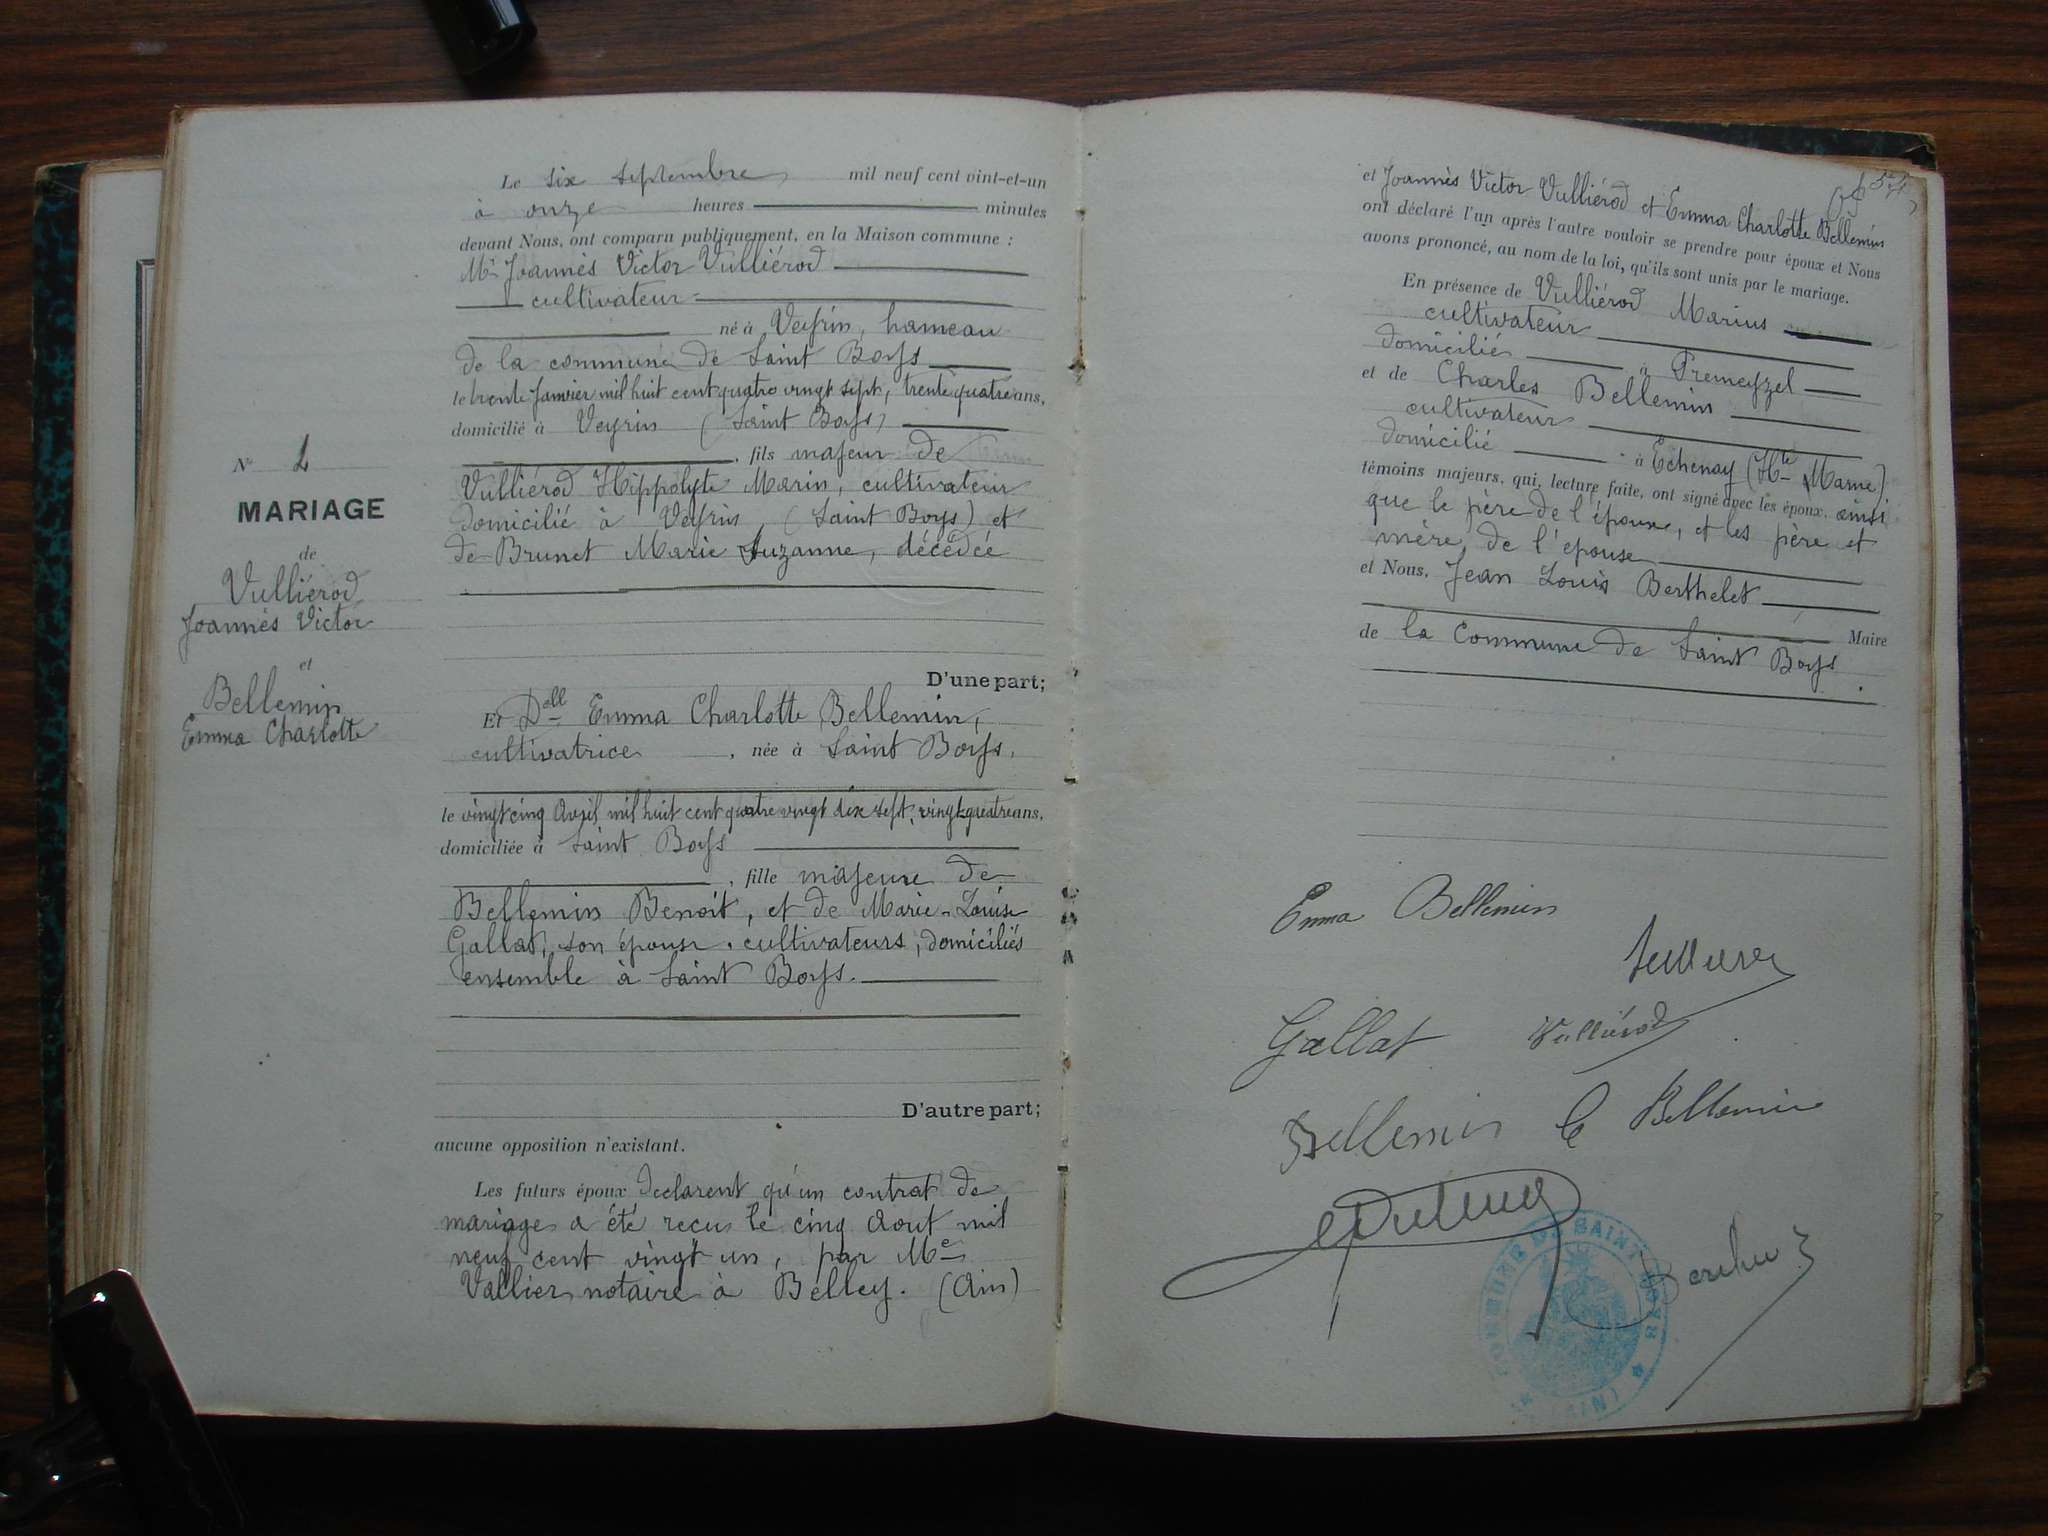 Le six septembre mil neuf cent vint-et-un
à onze heures minutes
devant Nous, ont comparu publiquement, en la Maison commune :
Mr Joannès Victor Vulliérod
cultivateur
né à Veyrin, hameau
de la commune de Saint Boys
le trente Janvier mil huit cent quatre vingt sept, trente quatre ans,
domicilié à Veyrin (Saint Boys)
, fils majeur de
Vulliérod Hippolyte Marin, cultivateur
domicilié à Veyrin, (Saint Boys) et
de Brunet Marie Suzanne, décédée
N°
MARIAGE
de
Vulliérod
Joannès Victor
et
Bellemin
Emma Charlotte
D'une part;
Et Dell Emma Charlotte Bellemin,
cultivatrice, née à Saint Boys,
le vingt cinq Avril mil huit cent quatre vingt dix sept, vingt quatre ans,
domiciliée à Saint Boys
, fille majeure de
Bellemin Benoit, et de Marie-Louise
Gallat, son épouse, cultivateurs, domiciliés
ensemble à Saint Boys.
D'autre part;
aucune opposition n'existant.
Les futurs époux declarent qu'un contrat de
mariage a été recu le cinq Aout mil
neuf cent vingt un, par Me
Vallier notaire à Belley. (Ain)
et Joannès Victor Vulliérod et Emma Charlotte Bellemin
ont déclaré l'un après l'autre vouloir se prendre pour époux et Nous
avons prononcé, au nom de la loi, qu'ils sont unis par le mariage.
En présence de Vulliérod Marius
cultivateur
domicilié à Premeyzel
et de Charles Bellemin
cultivateur
domicilié à Echenay (Hte Marne)
témoins majeurs, qui, lecture faite, ont signé avec les époux, ainsi
que le père de l'époux, et les père et
mère de l'epouse
et Nous, Jean Louis Berthelet
Maire
de la Commune de Saint Boys.
Emma Bellemin
Gallat Vulliérod
Bellemin C Bellemin
COMMUNE DE SAINT BOYS (AIN)